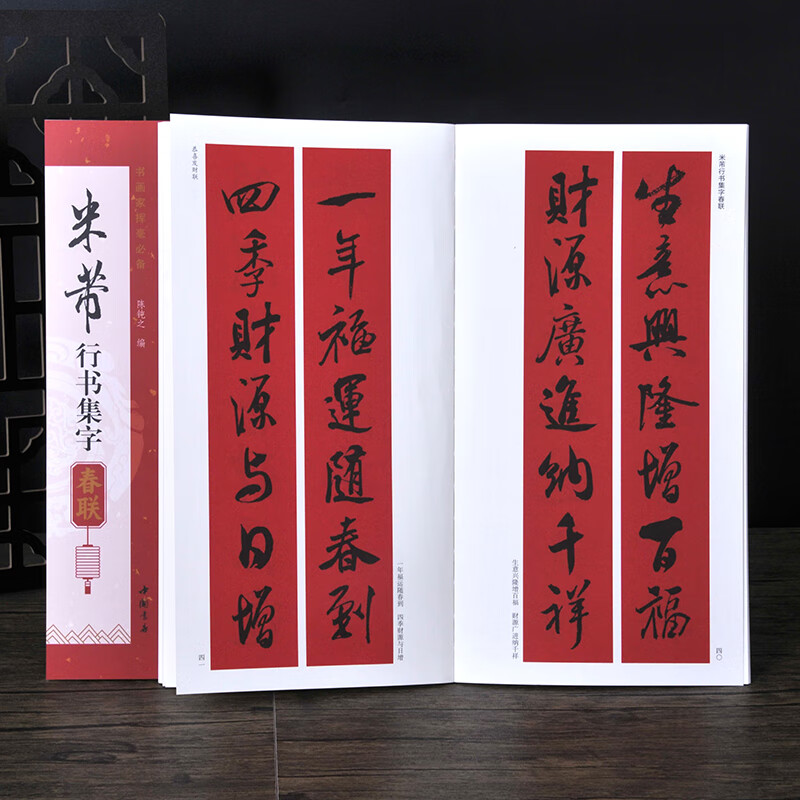 书画家挥毫必备
米芾
行书集字
春联
陈钝之 编
中国书店
米芾行书集字春联
生意興隆增百福
財源廣進納千祥
生意兴隆增百福 财源广进纳千祥
四〇
恭喜发财联
一年福運随春到
四季財源与日增
一年福运随春到 四季财源与日增
四一